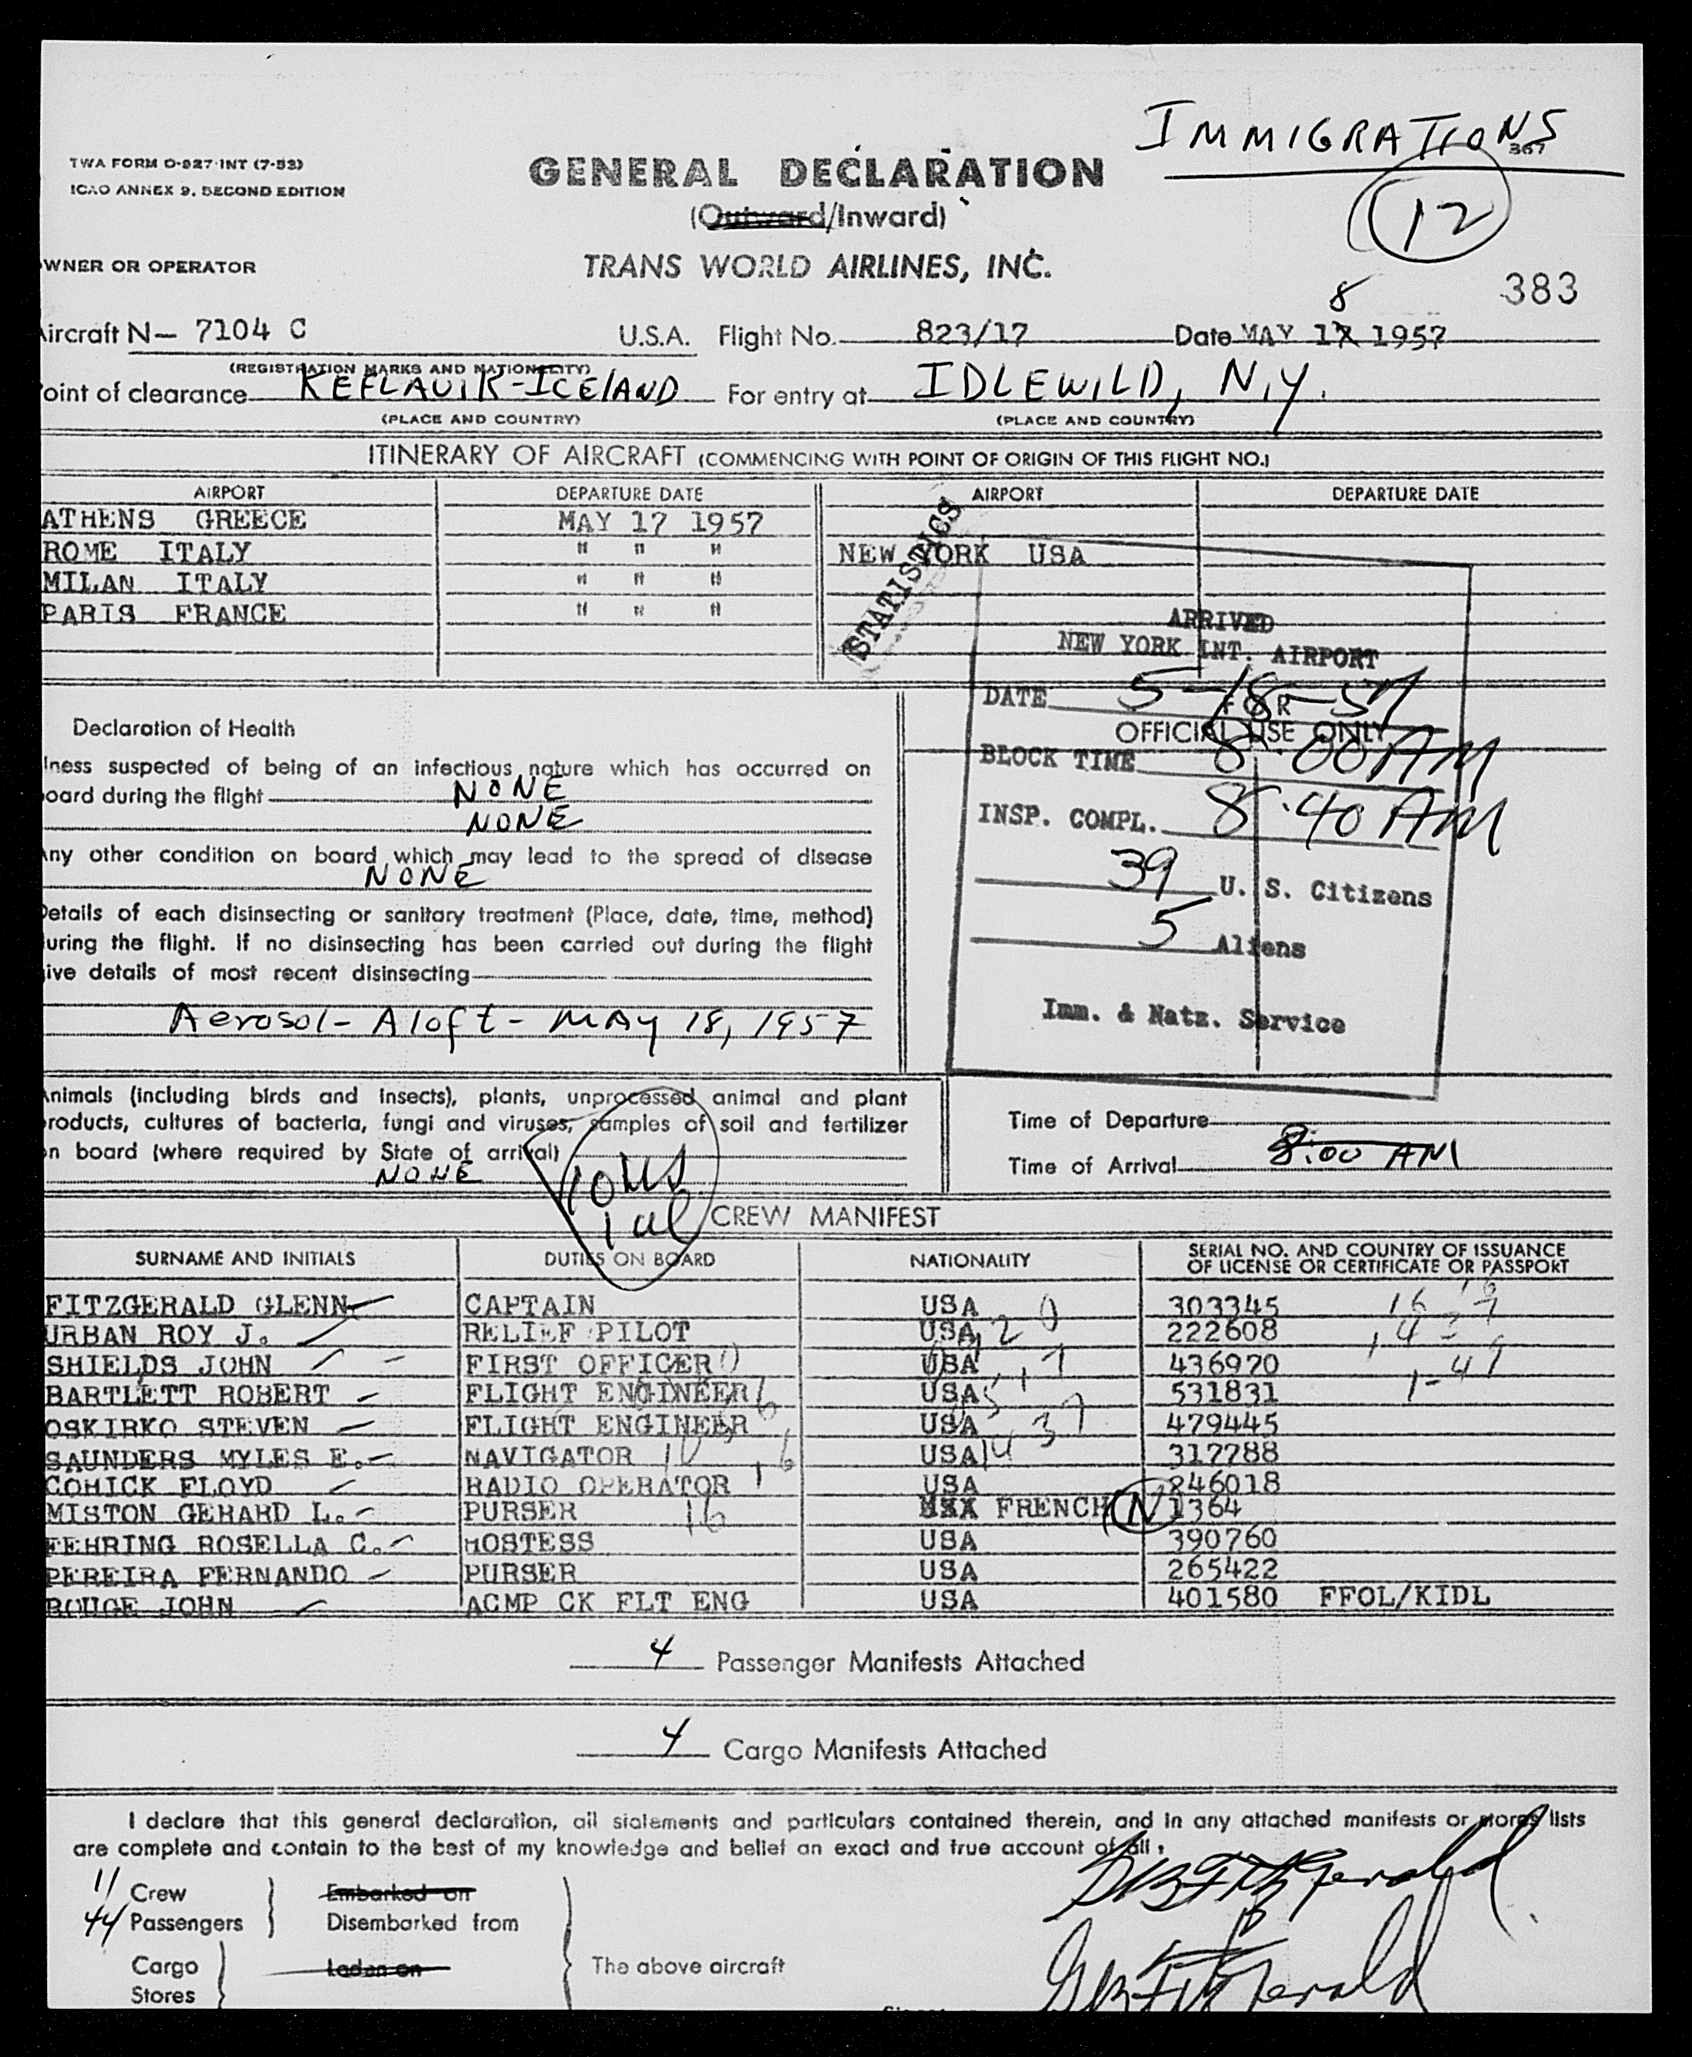 IMMIGRATIONS
367
TWA FORM O-927-INT (7-53)
ICAO ANNEX 9, SECOND EDITION
GENERAL DECLARATION
(Outward/Inward)
12
WNER OR OPERATOR
TRANS WORLD AIRLINES, INC.
383
8
ircraft N- 7104 C U.S.A. Flight No. 823/17 Date MAY 17 1957
(REGISTRATION MARKS AND NATIONALITY)
oint of clearance KEFLAVIK-ICElAND For entry at IDLEWILD, N.Y.
(PLACE AND COUNTRY) (PLACE AND COUNTRY)
ITINERARY OF AIRCRAFT (COMMENCING WITH POINT OF ORIGIN OF THIS FLIGHT NO.)
AIRPORT DEPARTURE DATE AIRPORT DEPARTURE DATE
ATHENS GREECE MAY 17 1957
ROME ITALY " " " NEW YORK USA
MILAN ITALY " " "
PARIS FRANCE " " "
STATISTICS
ARRIVED
NEW YORK INT. AIRPORT
DATE 5-18-57
FOR
OFFICIAL USE ONLY
BLOCK TIME 8:00 AM
INSP. COMPL. 8:40 AM
39 U. S. Citizens
5 Aliens
Imm. & Natz. Service
Declaration of Health
lness suspected of being of an infectious nature which has occurred on
oard during the flight NONE
NONE
ny other condition on board which may lead to the spread of disease
NONE
etails of each disinsecting or sanitary treatment (Place, date, time, method)
uring the flight. If no disinsecting has been carried out during the flight
ive details of most recent disinsecting
Aerosol- Aloft - MAy 18, 1957
nimals (including birds and insects), plants, unprocessed animal and plant
roducts, cultures of bacteria, fungi and viruses, samples of soil and fertilizer
n board (where required by State of arrival)
NONE
10 US
1 al
Time of Departure
Time of Arrival 8:00 AM
CREW MANIFEST
SURNAME AND INITIALS DUTIES ON BOARD NATIONALITY SERIAL NO. AND COUNTRY OF ISSUANCE
OF LICENSE OR CERTIFICATE OR PASSPORT
FITZGERALD GLENN CAPTAIN USA 303345
URBAN ROY J. RELIEF PILOT USA 222608
SHIELDS JOHN FIRST OFFICER USA 436970
BARTLETT ROBERT FLIGHT ENGINEER USA 531831
OSKIRKO STEVEN FLIGHT ENGINEER USA 479445
SAUNDERS MYLES E. NAVIGATOR USA 317788
COHICK FLOYD RADIO OPERATOR USA 846018
MISTON GERARD L. PURSER FRENCH N 1364
FEHRING ROSELLA C. HOSTESS USA 390760
PEREIRA FERNANDO PURSER USA 265422
ROUGE JOHN ACMP CK FLT ENG USA 401580 FFOL/KIDL
4 Passenger Manifests Attached
4 Cargo Manifests Attached
I declare that this general declaration, all statements and particulars contained therein, and in any attached manifests or stores lists
are complete and contain to the best of my knowledge and belief an exact and true account of all:
11 Crew Embarked on
44 Passengers Disembarked from
Cargo Laden on The above aircraft
Stores
GB Fitzgerald
GB Fitzgerald